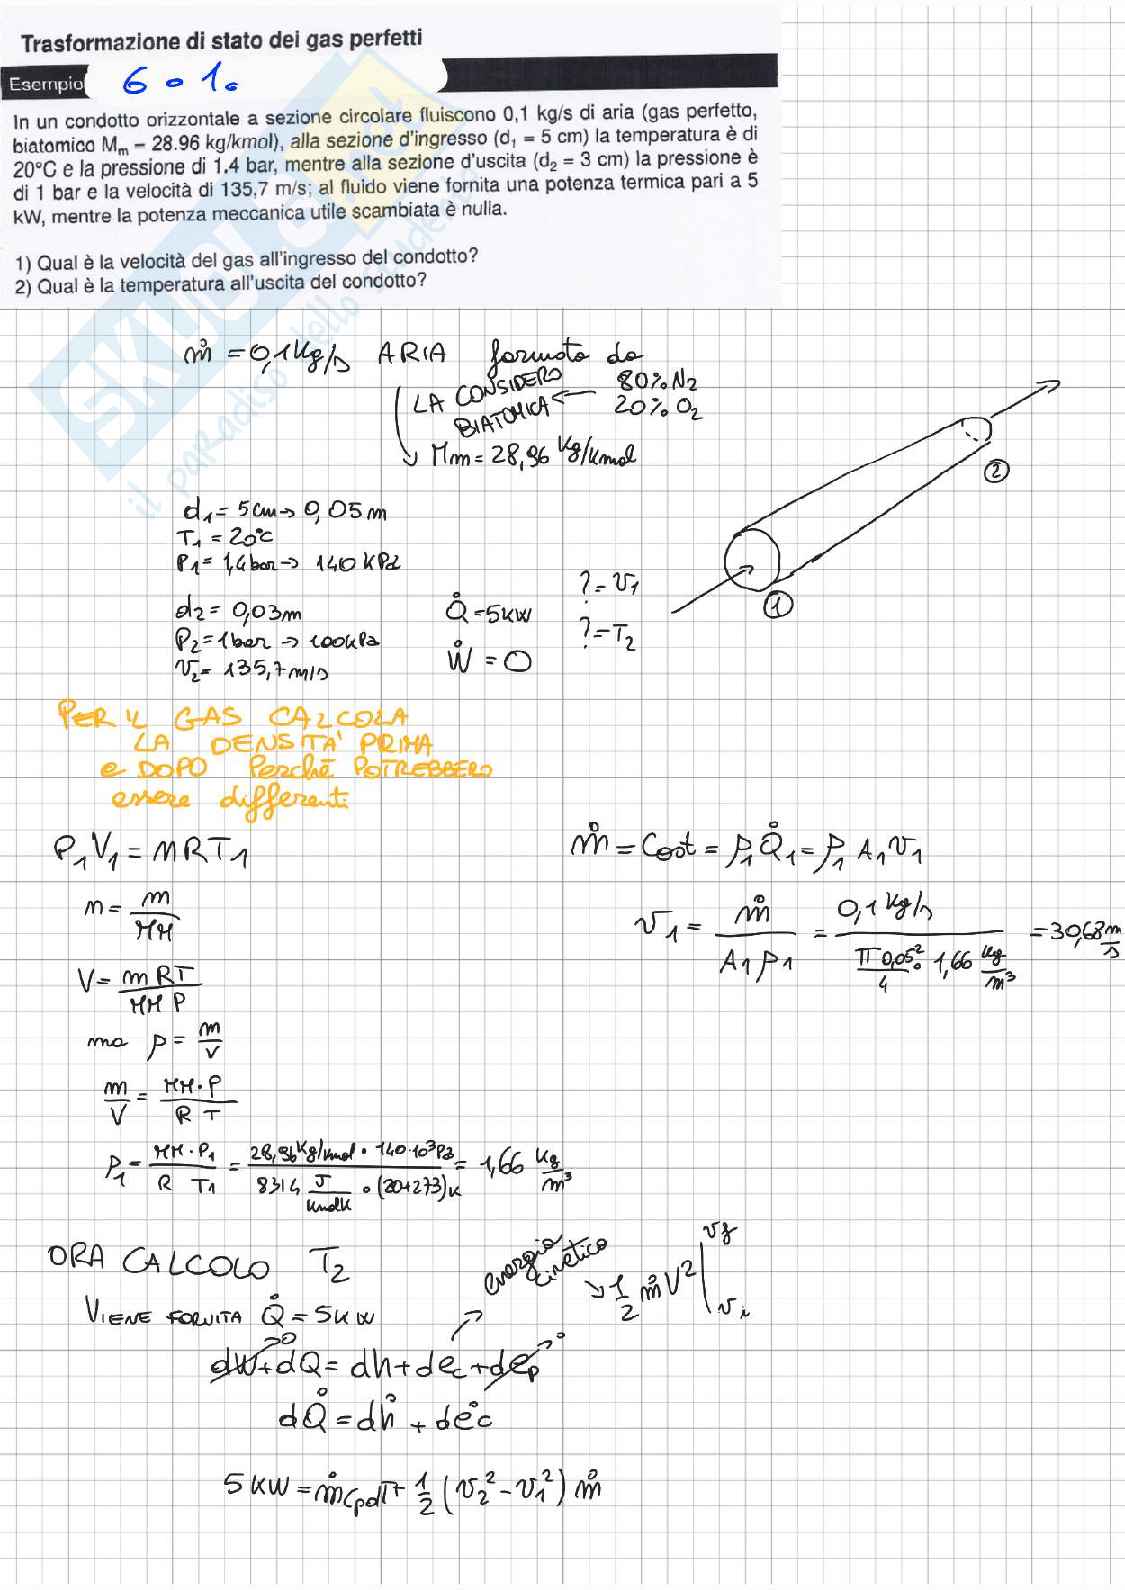 Trasformazione di stato dei gas perfetti
Esempio 6.1.
In un condotto orizzontale a sezione circolare fluiscono 0,1 kg/s di aria (gas perfetto,
biatomico Mm = 28.96 kg/kmol), alla sezione d'ingresso (d1 = 5 cm) la temperatura è di
20°C e la pressione di 1.4 bar, mentre alla sezione d'uscita (d2 = 3 cm) la pressione è
di 1 bar e la velocità di 135,7 m/s; al fluido viene fornita una potenza termica pari a 5
kW, mentre la potenza meccanica utile scambiata è nulla.
1) Qual è la velocità del gas all'ingresso del condotto?
2) Qual è la temperatura all'uscita del condotto?
SKUOLA.net
il paradiso dello studente
ṁ = 0,1 Kg/s ARIA formata da
80% N2
20% O2
LA CONSIDERO
BIATOMICA
Mm = 28,96 Kg/kmol
d1 = 5cm → 0,05 m
T1 = 20°C
P1 = 1,4 bar → 140 KPa
d2 = 0,03m
P2 = 1 bar → 100KPa
v2 = 135,7 m/s
Q̇ = 5KW
Ẇ = 0
? = v1
? = T2
1
2
PER IL GAS CALCOLA
LA DENSITA' PRIMA
e DOPO Perché POTREBBERO
essere differenti
P1V1 = nRT1
n = m/MM
V = mRT/MM P
ma ρ = m/V
m/V = MM·P/R T
ρ1 = MM·P1/R T1 = 28,96 Kg/kmol · 140·10³Pa / 8314 J/kmolK · (20+273)K = 1,66 Kg/m³
ṁ = Cost = ρ1 Q̇1 = ρ1 A1 v1
v1 = ṁ/A1 ρ1 = 0,1 Kg/s / π 0,05²/4 · 1,66 kg/m³ = 30,68 m/s
ORA CALCOLO T2
VIENE FORNITA Q̇ = 5KW
energia
cinetica
→ 1/2 ṁ V² | vf vi
dW→0 + dQ = dh + dec + dep→0
dQ̇ = dḣ + dėc
5 KW = ṁcpdT + 1/2 (v2² - v1²) ṁ